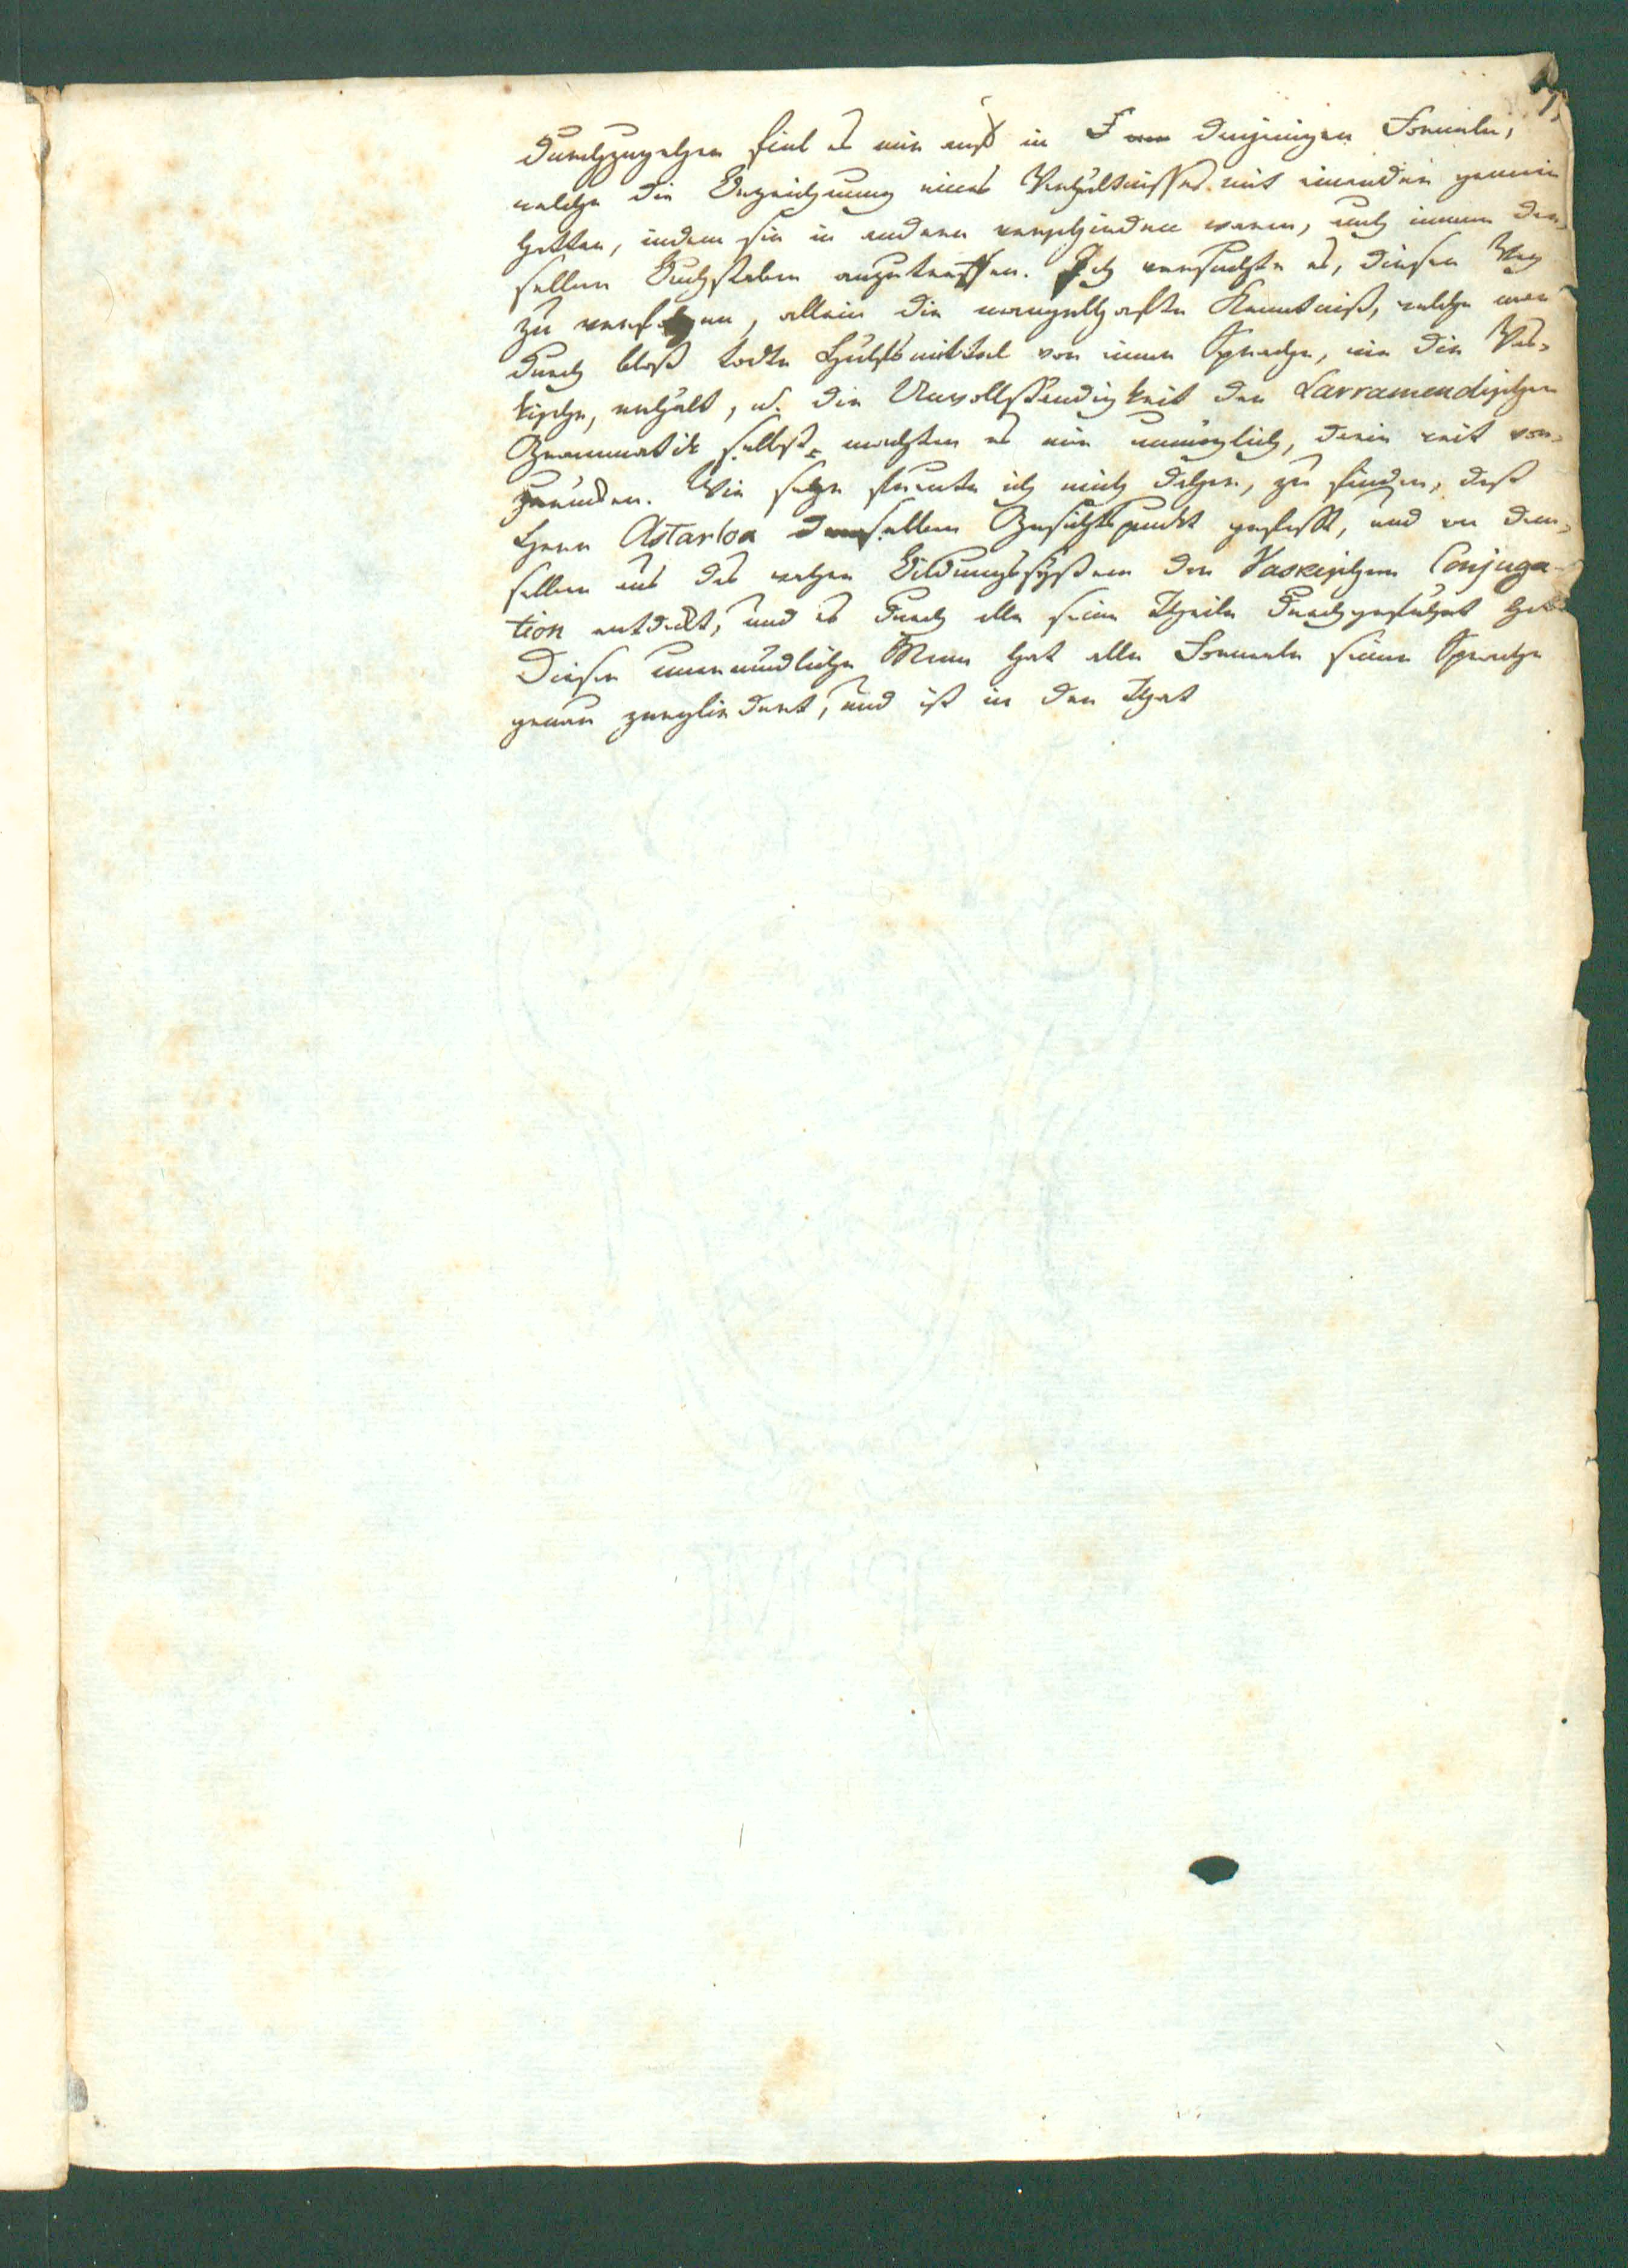 durchzugehen fiel es mir auf in denjenigen Formeln,
welche die Bezeichnung eines Verhältnisses mit einander gemein
hatten, indem sie in andern verschieden waren, auch immer den-
selben Buchstaben anzutreffen. Ich versuchte es, diesen Weg
zu verfolgen, allein die mangelhafte Kenntniß, welche man
durch bloß todte Hülfsmittel von einer Sprache, wie die Vas-
kische, erhält, u. die Unvollständigkeit der Larramendischen
Grammatik selbst machten es mir unmöglich, darin weit vor-
zurücken. Wie sehr freute ich mich daher, zu finden, daß
Herr Astarloa denselben Gesichtspunkt gefaßt, und von dem-
selben aus das wahre Bildungssystem der Vaskischen Conjuga-
tion entdeckt, und es durch alle seine Theile durchgeführt hat
Dieser unermüdliche Mann hat alle Formeln seiner Sprache
genau zergliedert, und ist in der That